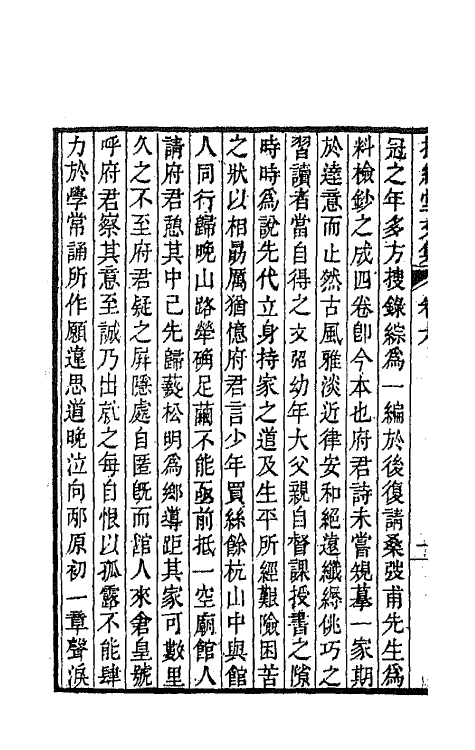 抱經堂文集 卷六
冠之年多方搜錄綜爲一編於後復請桑弢甫先生爲
料檢鈔之成四卷卽今本也府君詩未嘗規摹一家期
於達意而止然古風雅淡近律安和絕遠纖縟佻巧之
習讀者當自得之文弨幼年大父親自督課授書之隙
時時爲說先代立身持家之道及生平所經艱險困苦
之狀以相勗厲猶憶府君言少年買絲餘杭山中與館
人同行歸晚山路犖确足繭不能亟前抵一空廟館人
請府君憩其中己先歸蓺松明爲鄉導距其家可數里
久之不至府君疑之屏隱處自匿旣而館人來倉皇號
呼府君察其意至誠乃出就之每自恨以孤露不能肆
力於學常誦所作願違思道晚泣向邴原初一章聲淚